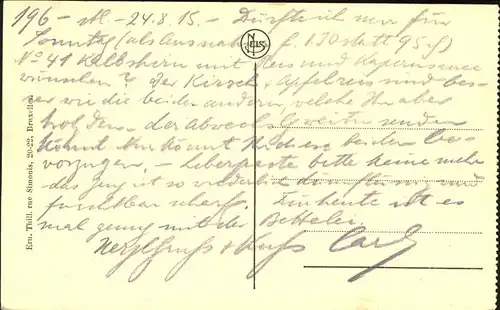 196 - Al. - 24.8.15. - Dürfte ich nur für
Sonntag (als Ausnahme f. 1.30 statt 95 ₰)
No 41 Kalbshirn mit Reis und Kapernsauce
wünschen? Der Kirsch & Apfelreis sind bes-
ser wie die beiden andern, welche Ihr aber
trotzdem der Abwechslg weiter senden
könnt
bevorzugen. - Leberpaste bitte keine mehr
das Zeug ist so widerlich und
furchtbar scharf. Für heute ist es
mal genug mit der Bettelei.
Herzl Gruss + Kuss Carl
NELS
Ern. Thill, rue Simonis, 20-22, Bruxelles